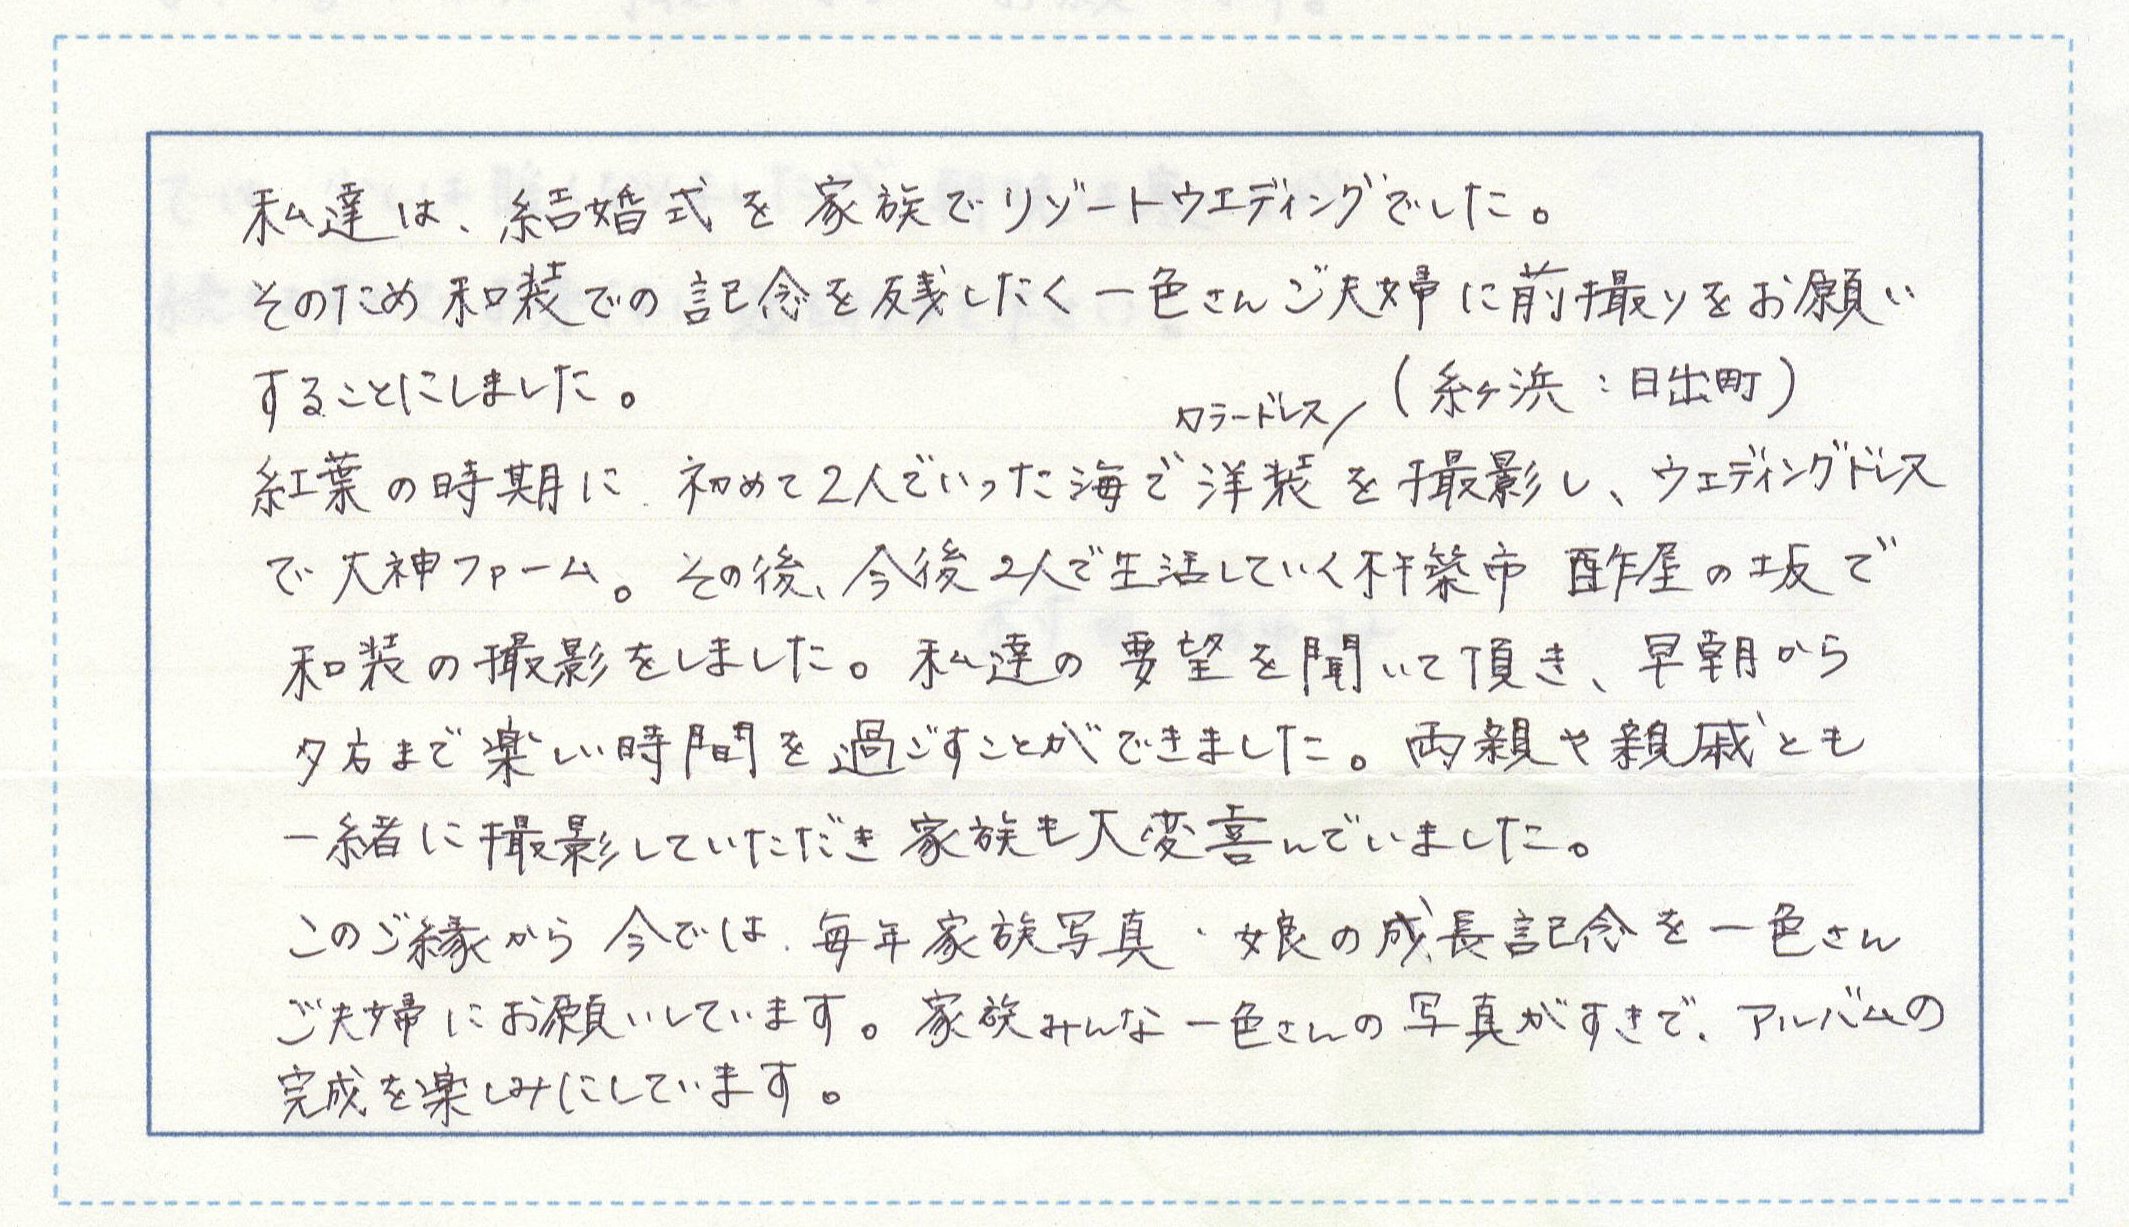 私達は、結婚式を家族でリゾートウエディングでした。
そのため和装での記念を残したく一色さんご夫婦に前撮りをお願い
することにしました。
(糸ヶ浜：日出町)
カラードレス/
紅葉の時期に、初めて2人でいった海で洋装を撮影し、ウェディングドレス
で大神ファーム。その後、今後2人で生活していく杵築市 酢屋の坂で
和装の撮影をしました。私達の要望を聞いて頂き、早朝から
夕方まで楽しい時間を過ごすことができました。両親や親戚とも
一緒に撮影していただき家族も大変喜んでいました。
このご縁から今では、毎年家族写真・娘の成長記念を一色さん
ご夫婦にお願いしています。家族みんな一色さんの写真がすきで、アルバムの
完成を楽しみにしています。